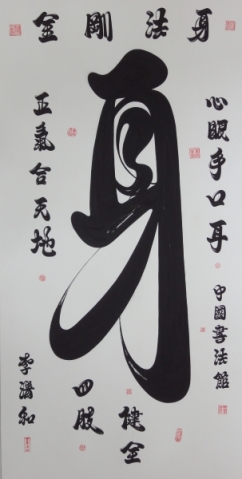 金剛法身
心眼手口耳
中國書法館
身
健全
四肢
正氣合天地
李濟和